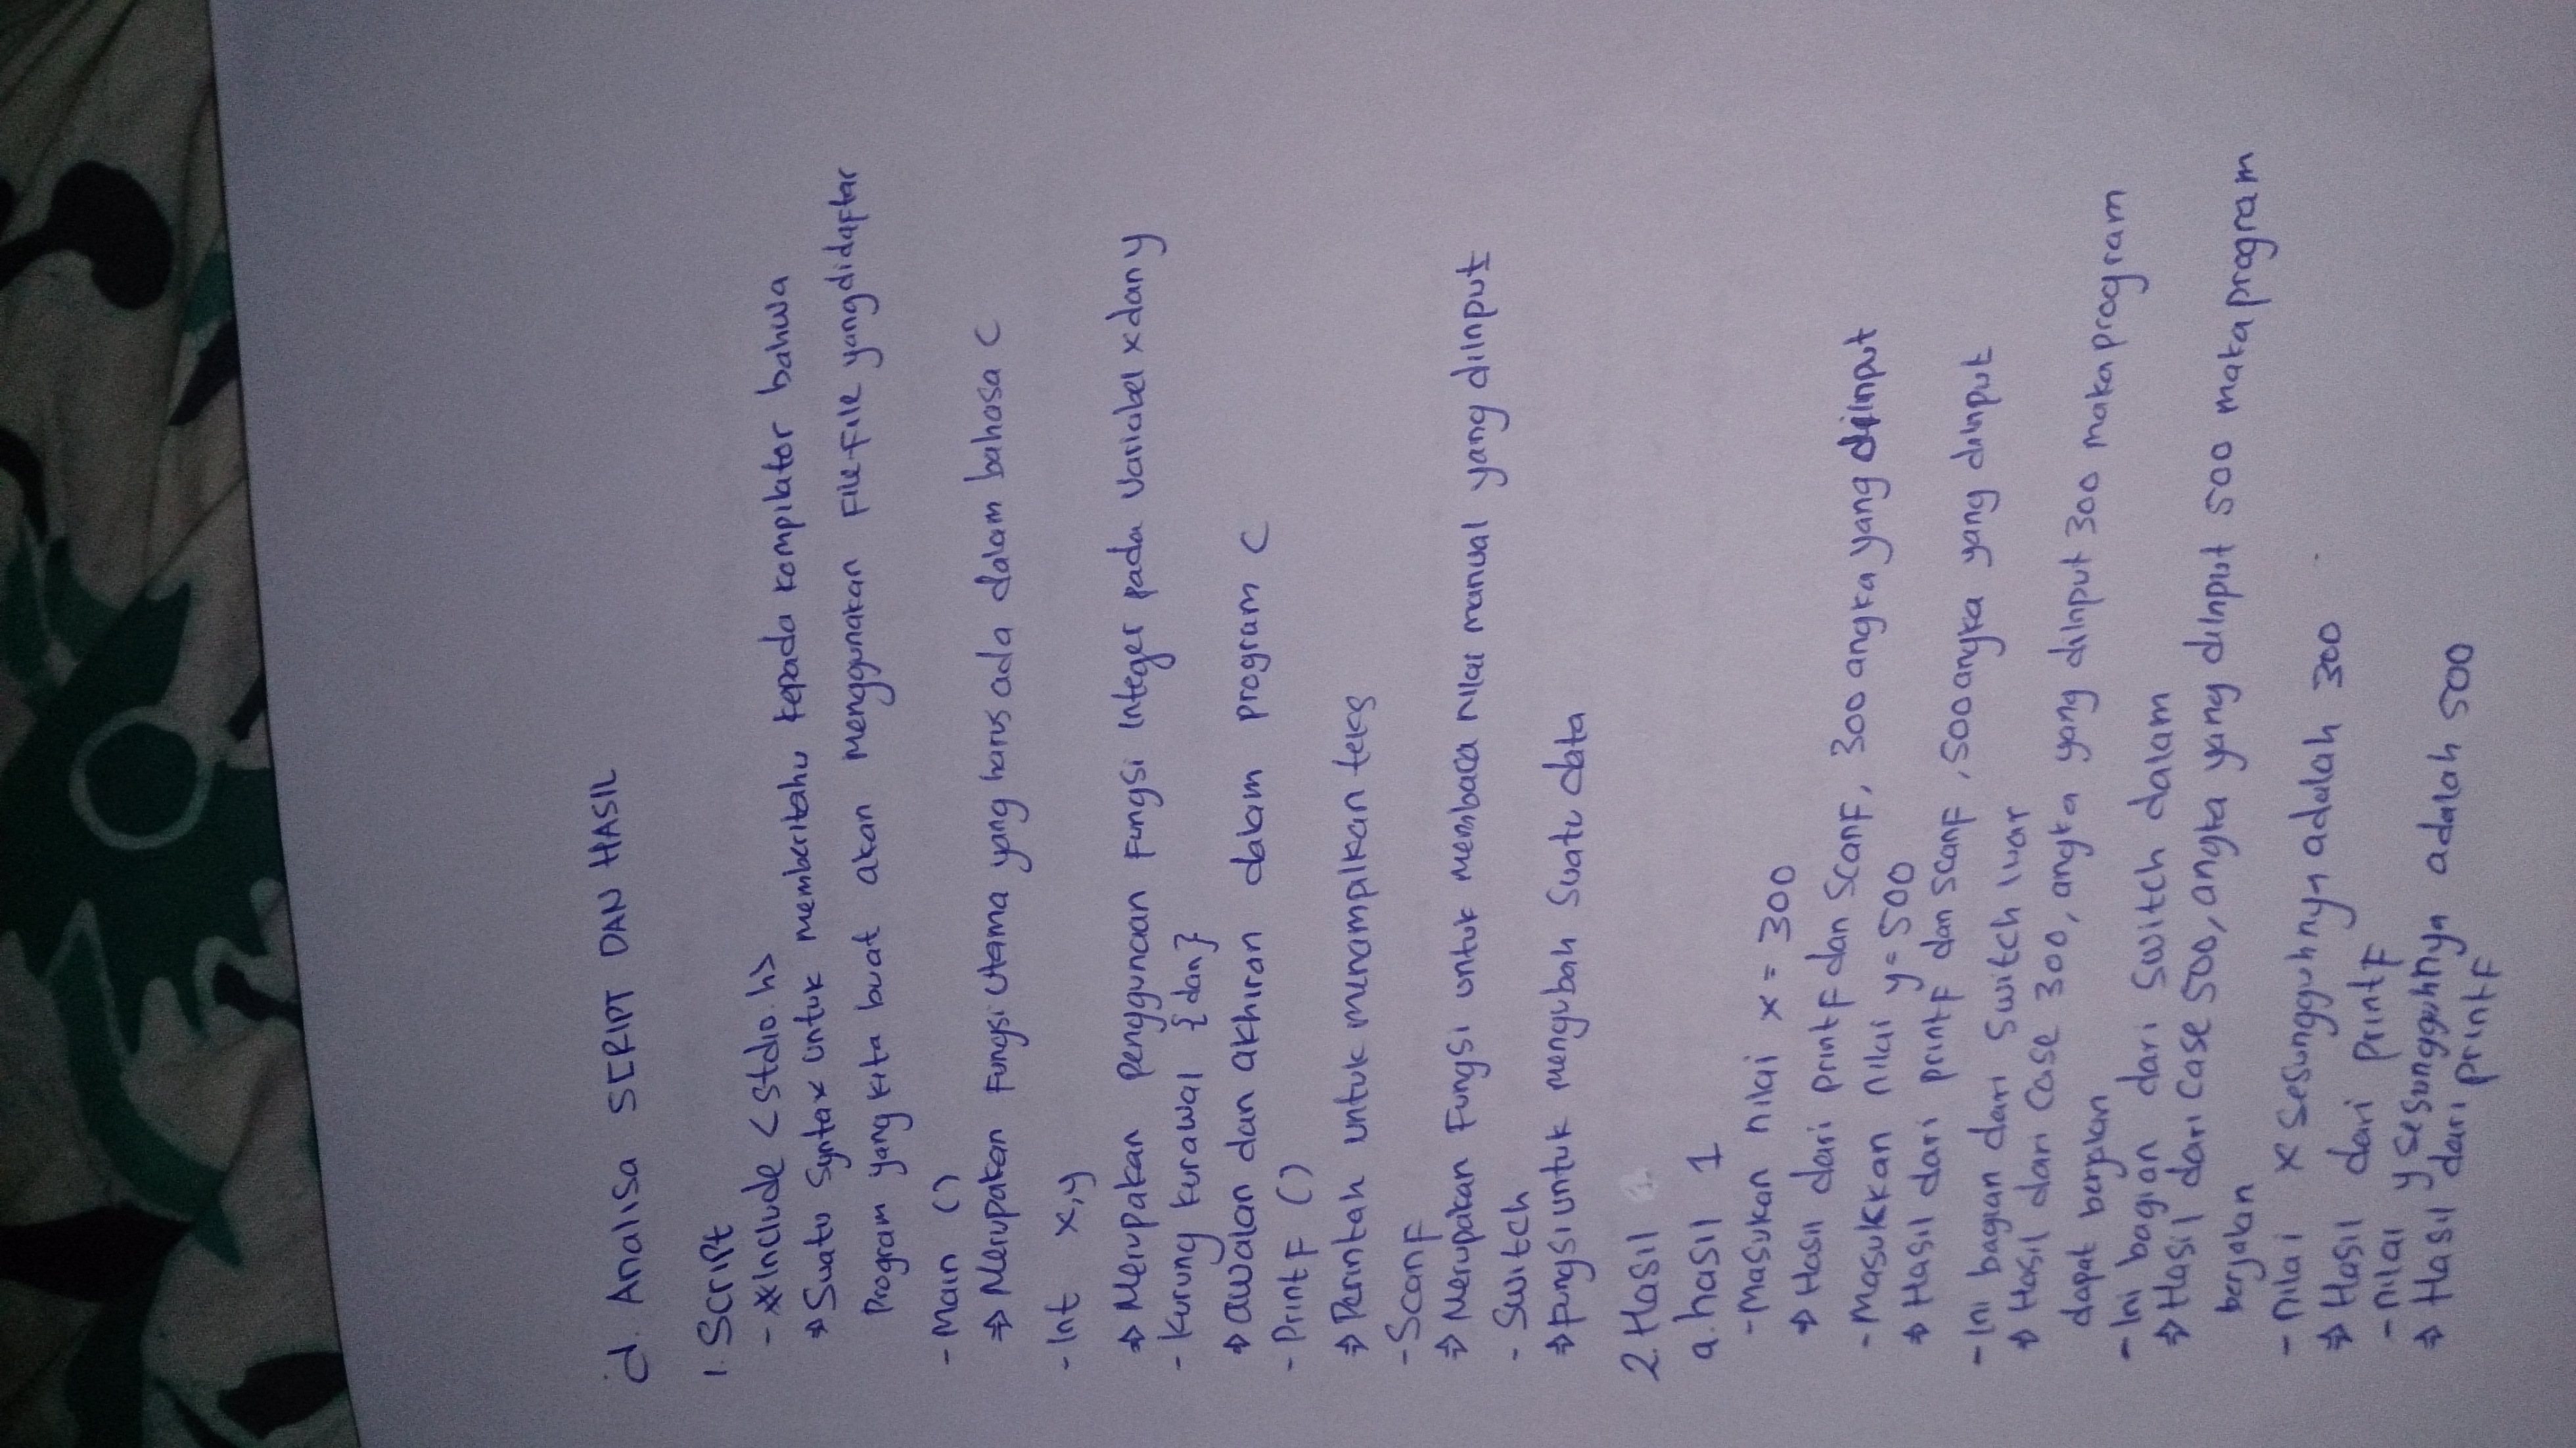 d. Analisa SCRIPT DAN HASIL
1. Script
- #Include <stdio.h>
⇒ Suatu Syntax untuk memberitahu kepada kompilator bahwa
Program yang kita buat akan menggunakan File-File yang didaftar
- Main ()
⇒ Merupakan Fungsi Utama yang harus ada dalam bahasa C
- Int x,y
⇒ Merupakan penggunaan Fungsi Integer pada Variabel x dan y
- Kurung kurawal {dan}
⇒ awalan dan akhiran dalam program C
- PrintF ()
⇒ Perintah untuk menampilkan teks
- ScanF
⇒ Merupakan Fungsi untuk membaca nilai manual yang diinput
- Switch
⇒ Fungsi untuk mengubah Suatu data
2. Hasil
a. hasil 1
- Masukan nilai x = 300
⇒ Hasil dari printF dan ScanF, 300 angka yang diinput
- Masukkan nilai y = 500
⇒ Hasil dari printF dan scanF, 500 angka yang diinput
- Ini bagian dari Switch luar
⇒ Hasil dari Case 300, angka yang diinput 300 maka program
dapat berjalan
- Ini bagian dari Switch dalam
⇒ Hasil dari Case 500, angka yang diinput 500 maka program
berjalan
- nilai x Sesungguhnya adalah 300
⇒ Hasil dari printF
- nilai y Sesungguhnya adalah 500
⇒ Hasil dari printF